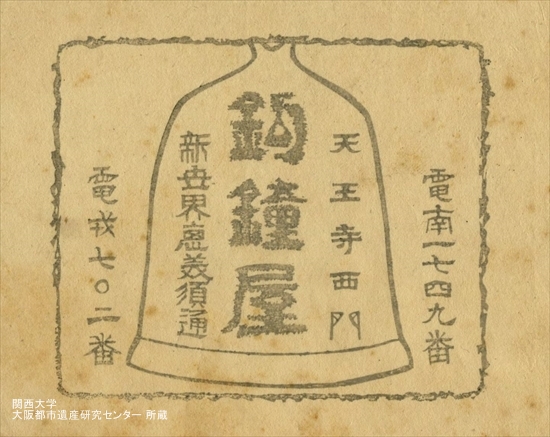 電南一七四九番
天王寺西門
釣鐘屋
新世界恵美須通
電戎七〇二番
関西大学
大阪都市遺産研究センター 所蔵